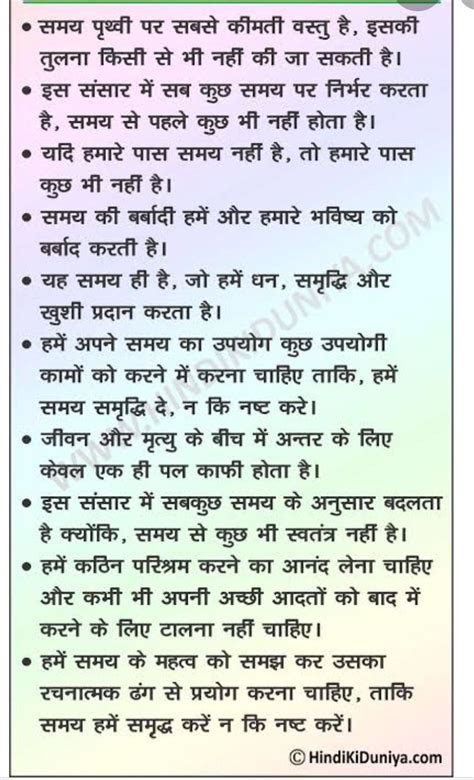 • समय पृथ्वी पर सबसे कीमती वस्तु है, इसकी
तुलना किसी से भी नहीं की जा सकती है।
• इस संसार में सब कुछ समय पर निर्भर करता
है, समय से पहले कुछ भी नहीं होता है।
• यदि हमारे पास समय नहीं है, तो हमारे पास
कुछ भी नहीं है।
• समय की बर्बादी हमें और हमारे भविष्य को
बर्बाद करती है।
• यह समय ही है, जो हमें धन, समृद्धि और
खुशी प्रदान करता है।
• हमें अपने समय का उपयोग कुछ उपयोगी
कामों को करने में करना चाहिए ताकि, हमें
समय समृद्धि दे, न कि नष्ट करे।
• जीवन और मृत्यु के बीच में अन्तर के लिए
केवल एक ही पल काफी होता है।
• इस संसार में सबकुछ समय के अनुसार बदलता
है क्योंकि, समय से कुछ भी स्वतंत्र नहीं है।
• हमें कठिन परिश्रम करने का आनंद लेना चाहिए
और कभी भी अपनी अच्छी आदतों को बाद में
करने के लिए टालना नहीं चाहिए।
• हमें समय के महत्व को समझ कर उसका
रचनात्मक ढंग से प्रयोग करना चाहिए, ताकि
समय हमें समृद्ध करें न कि नष्ट करें।
© HindiKiDuniya.com
WWW.HINDIKIDUNIYA.COM